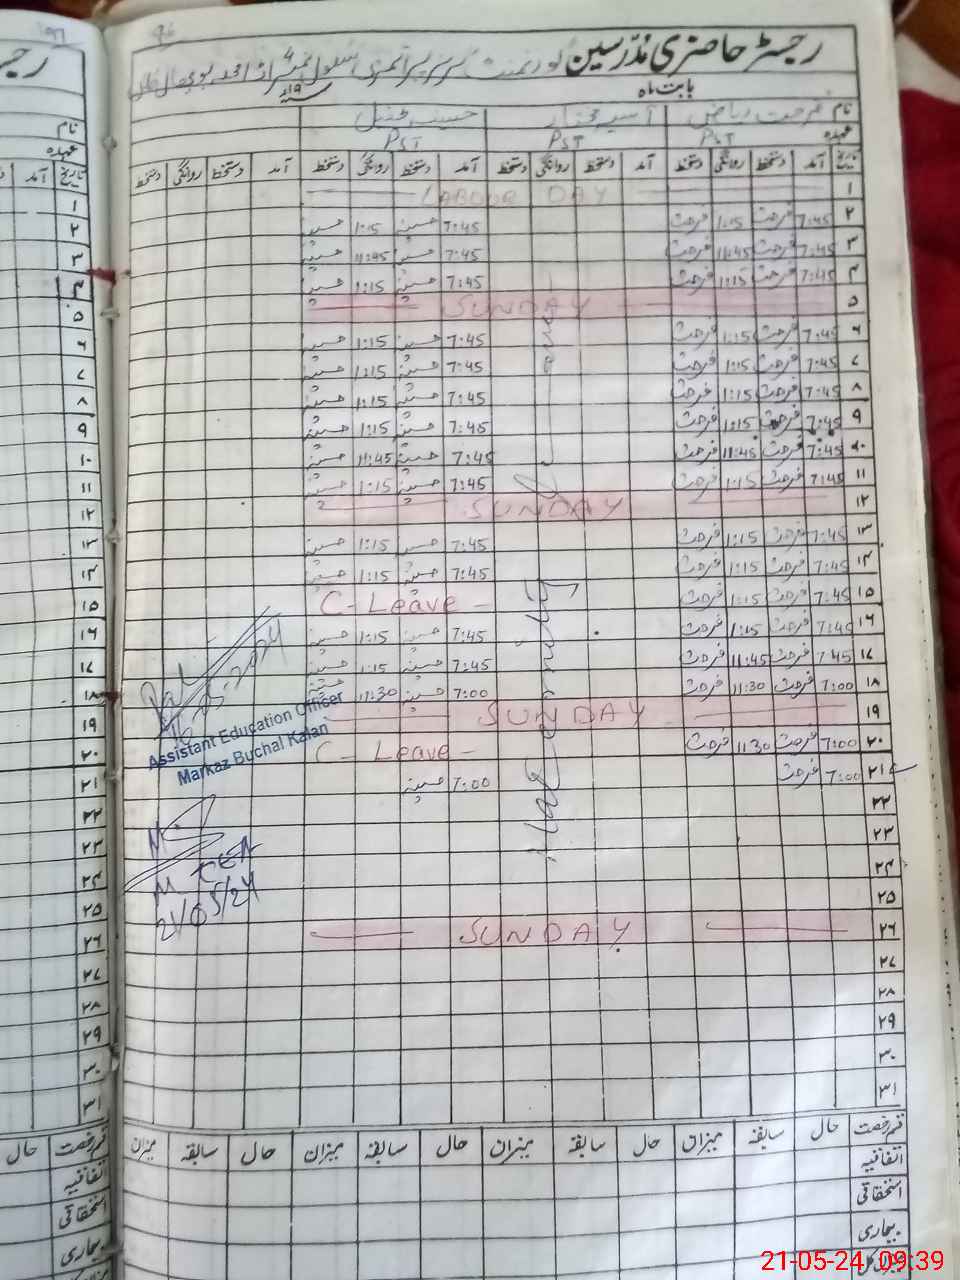 رجسٹر حاضری مدرسین گورنمنٹ گرلز پرائمری سکول نمبر
بابت ماہ ۱۹ء
نام فرحت ریاض آسیہ مختار
عہدہ PST PST PST
تاریخ آمد دستخط روانگی دستخط آمد دستخط روانگی دستخط آمد دستخط روانگی دستخط آمد دستخط روانگی دستخط
۱ LABOUR DAY
۲ 7:45 فرحت 1:15 فرحت 7:45 حسینہ 1:15 حسینہ
۳ 7:45 فرحت 11:45 فرحت 7:45 حسینہ 11:45 حسینہ
۴ 7:45 فرحت 1:15 فرحت 7:45 حسینہ 1:15 حسینہ
۵ SUNDAY
۶ 7:45 فرحت 1:15 فرحت 7:45 حسینہ 1:15 حسینہ
۷ 7:45 فرحت 1:15 فرحت 7:45 حسینہ 1:15 حسینہ
۸ 7:45 فرحت 1:15 فرحت 7:45 حسینہ 1:15 حسینہ
۹ 7:45 فرحت 1:15 فرحت 7:45 حسینہ 1:15 حسینہ
۱۰ 7:45 فرحت 11:45 فرحت 7:45 حسینہ 11:45 حسینہ
۱۱ 7:45 فرحت 1:15 فرحت 7:45 حسینہ 1:15 حسینہ
۱۲ SUNDAY
۱۳ 7:45 فرحت 1:15 فرحت 7:45 حسینہ 1:15 حسینہ
۱۴ 7:45 فرحت 1:15 فرحت 7:45 حسینہ 1:15 حسینہ
۱۵ 7:45 فرحت 1:15 فرحت C-Leave-
۱۶ 7:45 فرحت 1:15 فرحت 7:45 حسینہ 1:15 حسینہ
۱۷ 7:45 فرحت 11:45 فرحت 7:45 حسینہ 1:15 حسینہ
۱۸ 7:00 فرحت 11:30 فرحت 7:00 حسینہ 11:30 حسینہ
۱۹ SUNDAY
۲۰ 7:00 فرحت 11:30 فرحت C-Leave-
۲۱ 7:00 فرحت 7:00 حسینہ
۲۲
۲۳
۲۴
۲۵
۲۶ SUNDAY
۲۷
۲۸
۲۹
۳۰
۳۱
Assistant Education Officer
Markaz Buchal Kalan
21/05/24
قسم رخصت حال سابقہ میزان حال سابقہ میزان حال سابقہ میزان حال سابقہ میزان
اتفاقیہ
استحقاقی
بیماری
21-05-24 09:39